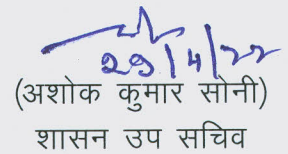 29/4/22
(अशोक कुमार सोनी)
शासन उप सचिव